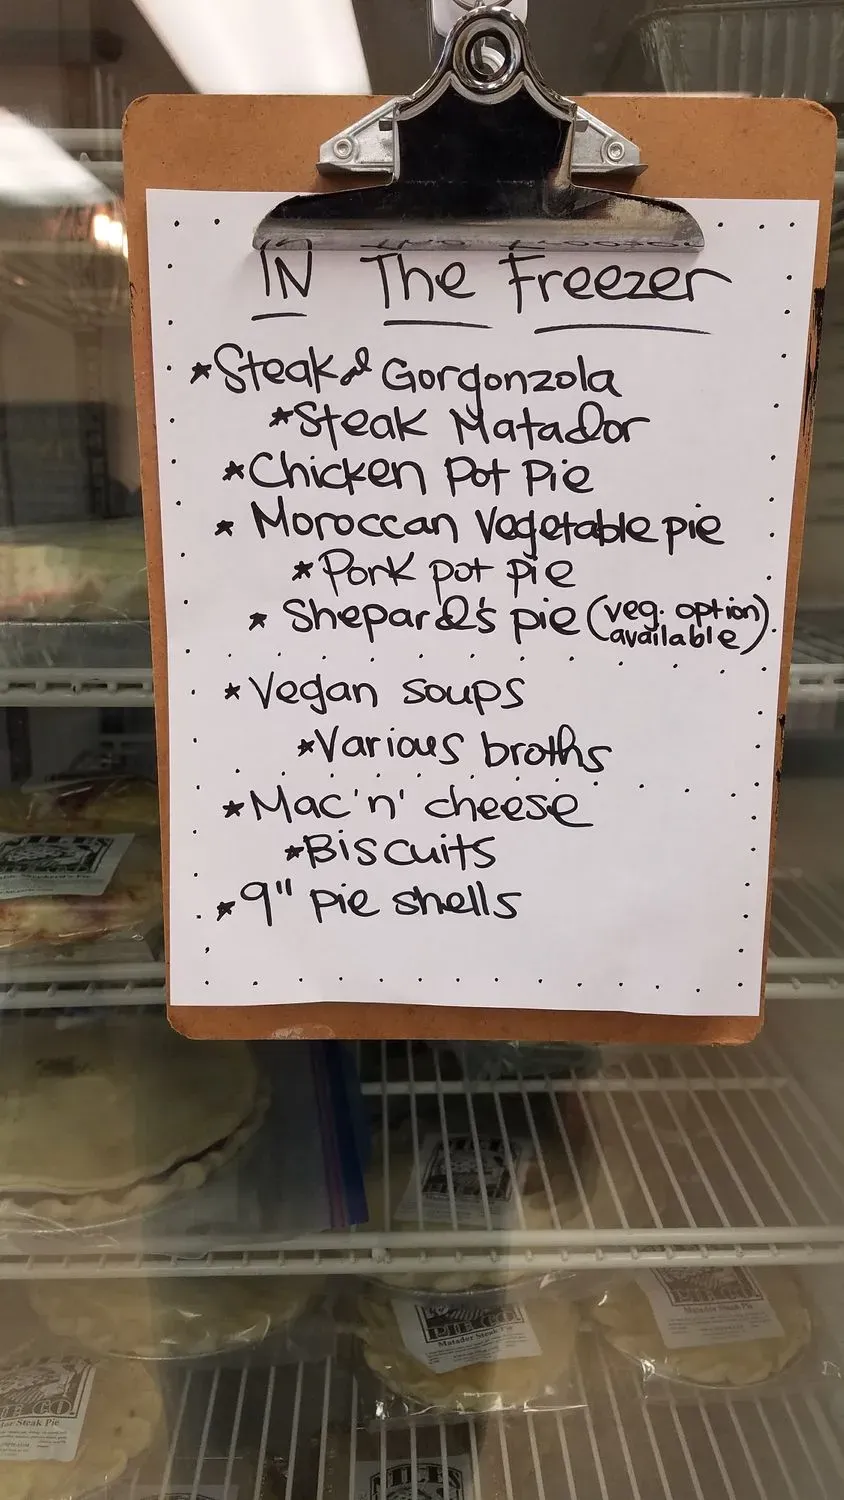 IN The Freezer
*Steak & Gorgonzola
*Steak Matador
*Chicken Pot Pie
* Moroccan Vegetable pie
*Pork pot pie
* Shepard's pie (veg. option available)
*Vegan soups
*Various broths
*Mac 'n' cheese
*Biscuits
*9" pie shells
PIE CO.
Matador Steak Pie
PIE CO.
Matador Steak Pie
Steak Pie